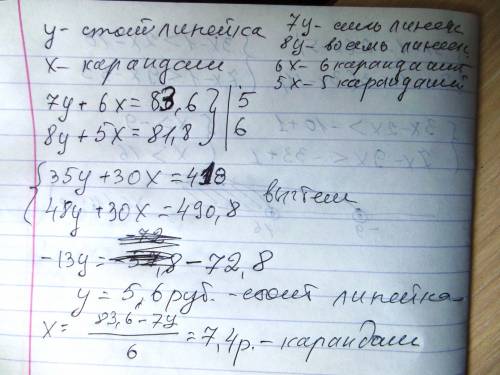 y - стоит линейка
7y - семь линеек
8y - восемь линеек
x - карандаш
6x - 6 карандашей
5x - 5 карандашей
7y + 6x = 83,6 | 5
8y + 5x = 81,8 | 6
35y + 30x = 418
48y + 30x = 490,8
вычтем
-13y = -72,8
y = 5,6 руб. - стоит линейка
x = (83,6 - 7y)/6 = 7,4 р. - карандаш